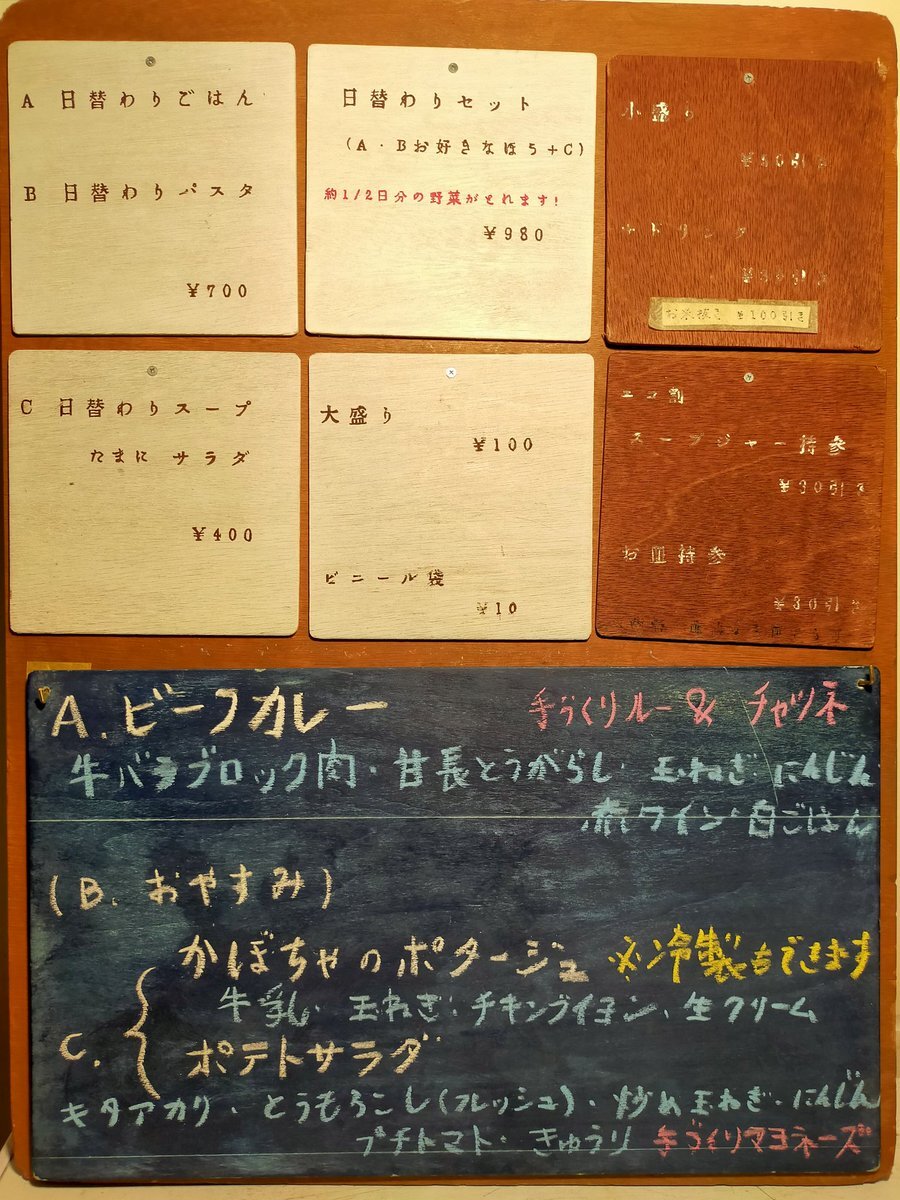 A 日替わりごはん
B 日替わりパスタ
¥700
日替わりセット
(A・Bお好きなほう+C)
約1/2日分の野菜がとれます!
¥980
小盛り
¥50引き
+ドリンク
引き
お米抜き ¥100引き
C 日替わりスープ
たまに サラダ
¥400
大盛り
¥100
ビニール袋
¥10
エコ割
スープジャー持参
¥30引き
お皿持参
¥30引き
A.ビーフカレー 手づくりルー& チャツネ
牛バラブロック肉・甘長とうがらし・玉ねぎ・にんじん
赤ワイン・白ごはん
(B.おやすみ)
かぼちゃのポタージュ ※冷製もできます
牛乳・玉ねぎ・チキンブイヨン・生クリーム
C.
ポテトサラダ
キタアカリ・とうもろこし(フレッシュ)・炒め玉ねぎ・にんじん
プチトマト・きゅうり 手づくりマヨネーズ